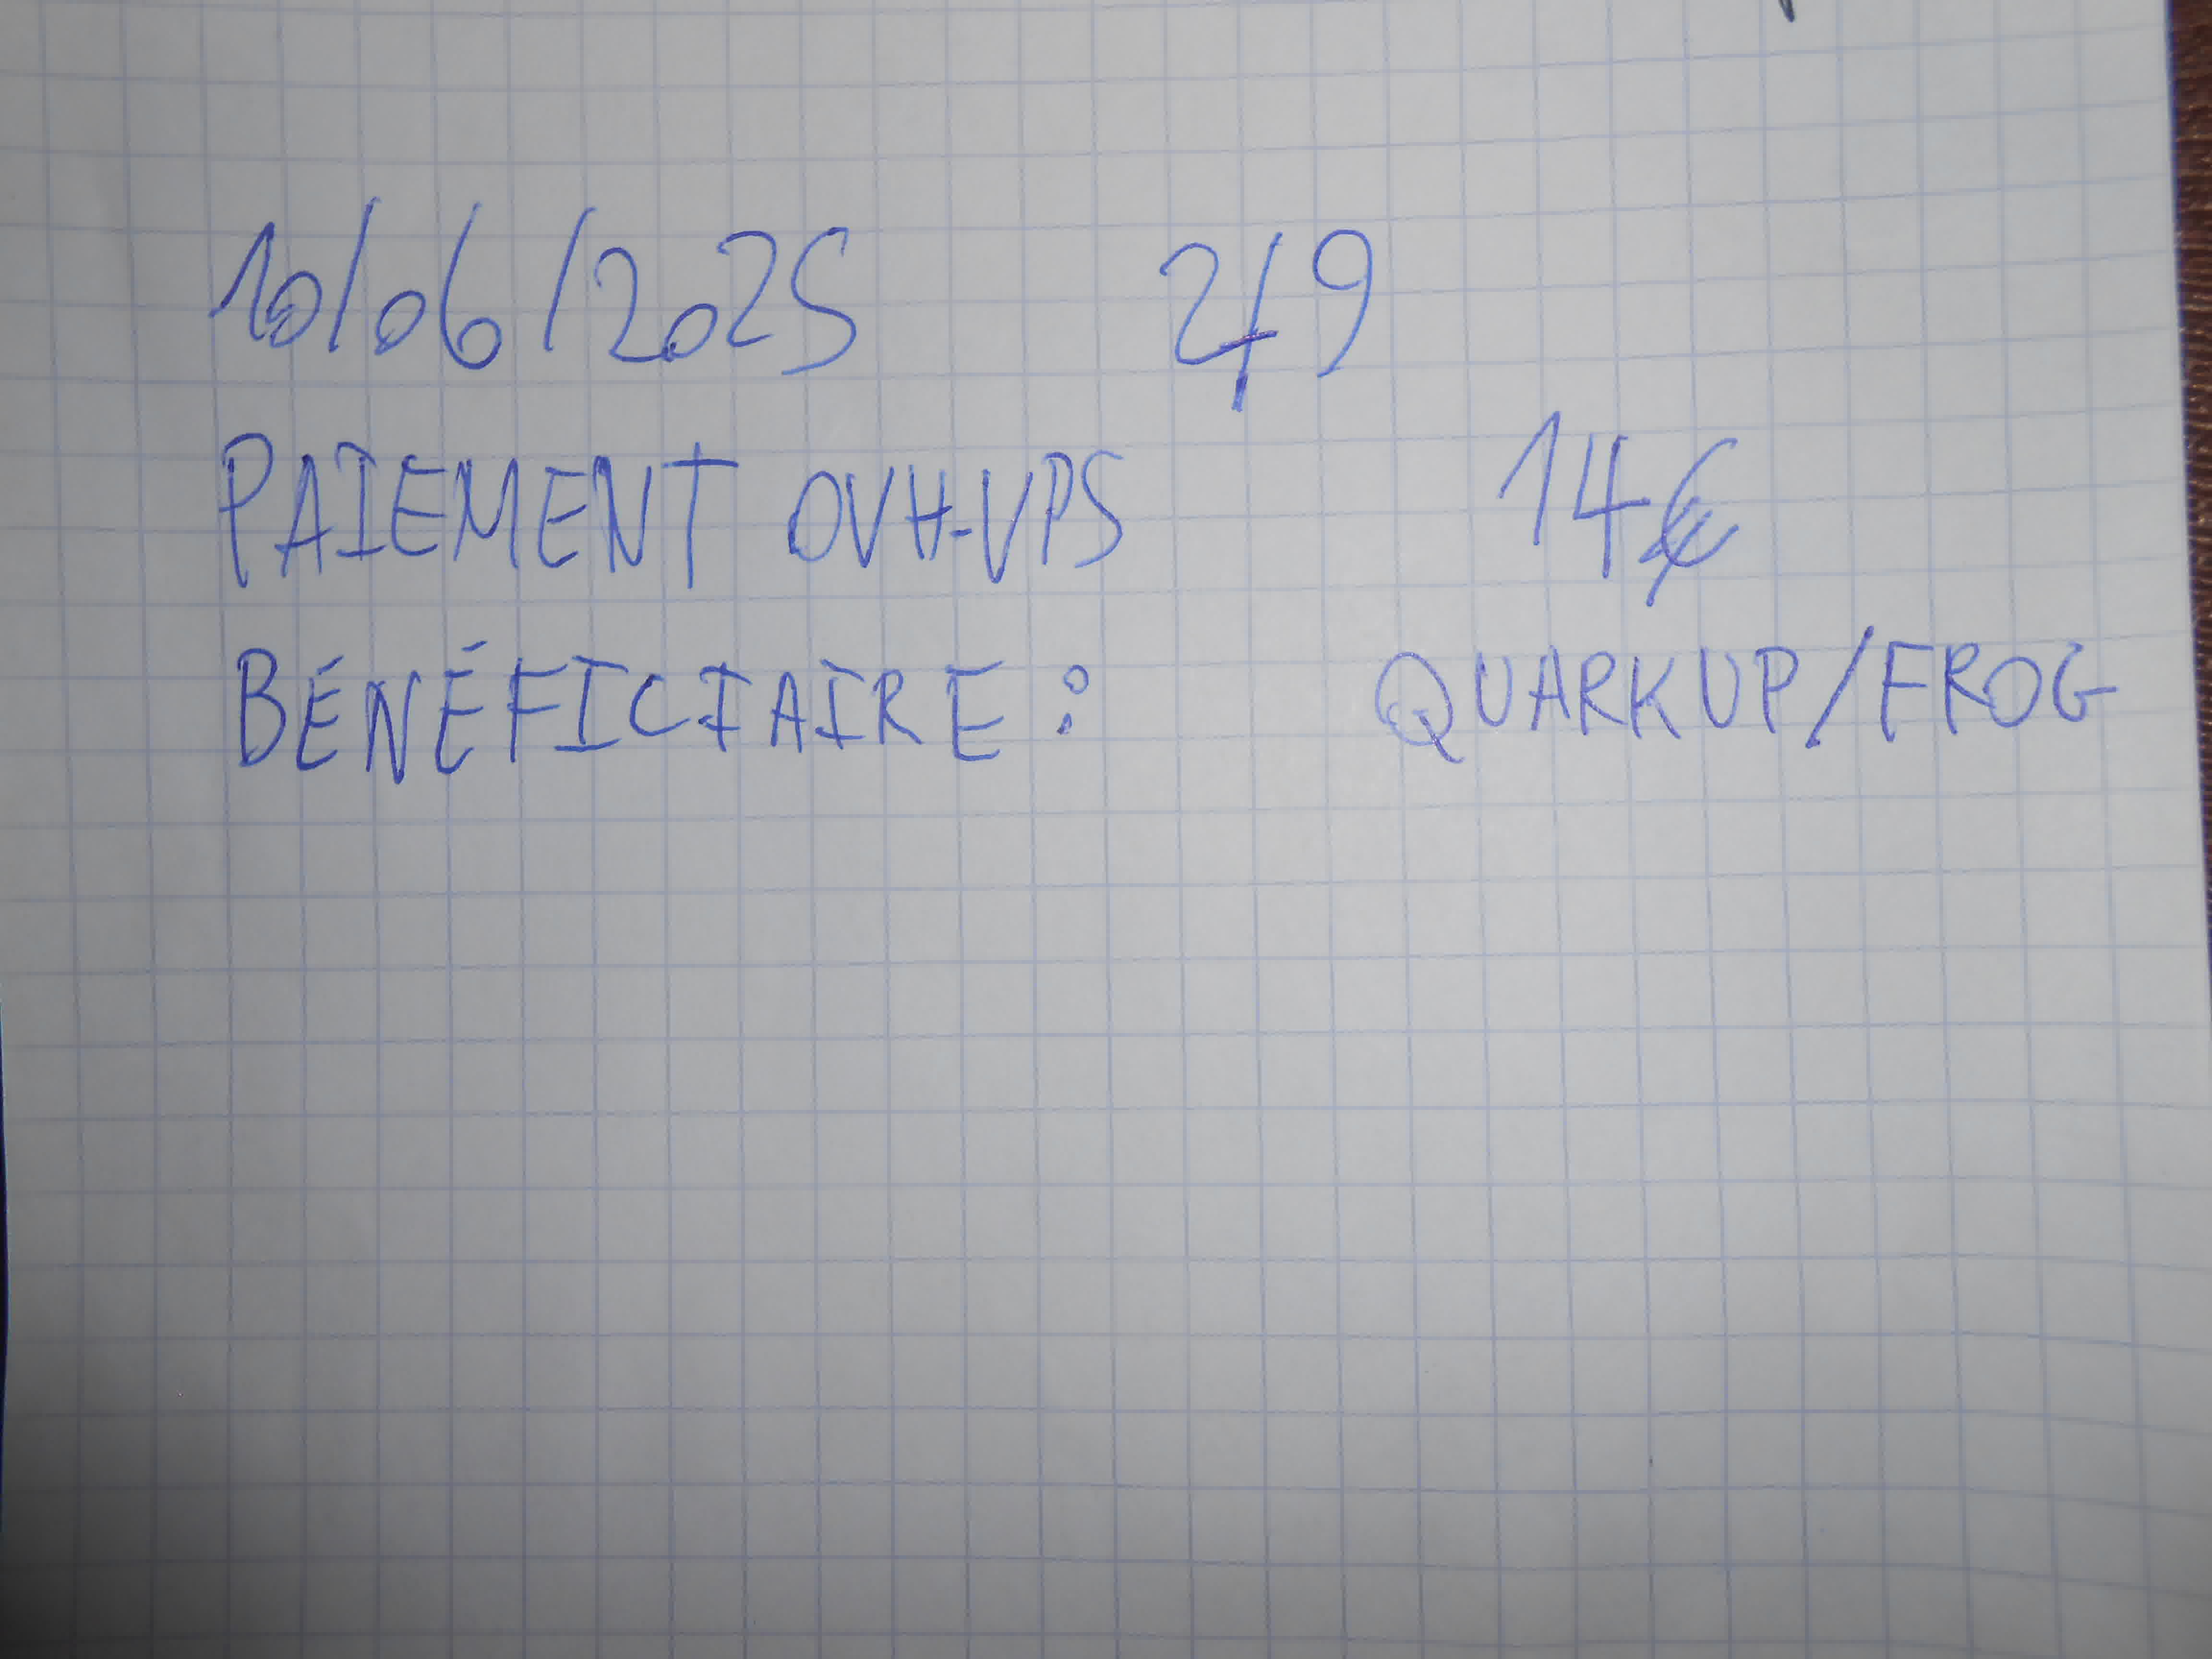 10/06/2025 2/9
PAIEMENT OVH-VPS 14€
BÉNÉFICIAIRE : QUARKUP/FROG